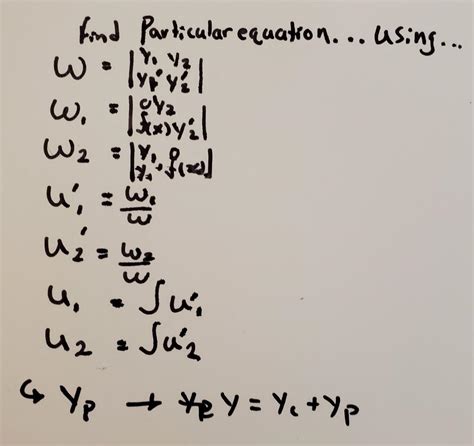 find Particular equation... using...
W = |y₁ y₂
yp' y₂'|
W₁ = |0 y₂
f(x) y₂'|
W₂ = |y₁ 0
y₁' f(x)|
u₁' = W₁/W
u₂' = W₂/W
u₁ = ∫u₁'
u₂ = ∫u₂'
↳ yp → y = yc + yp